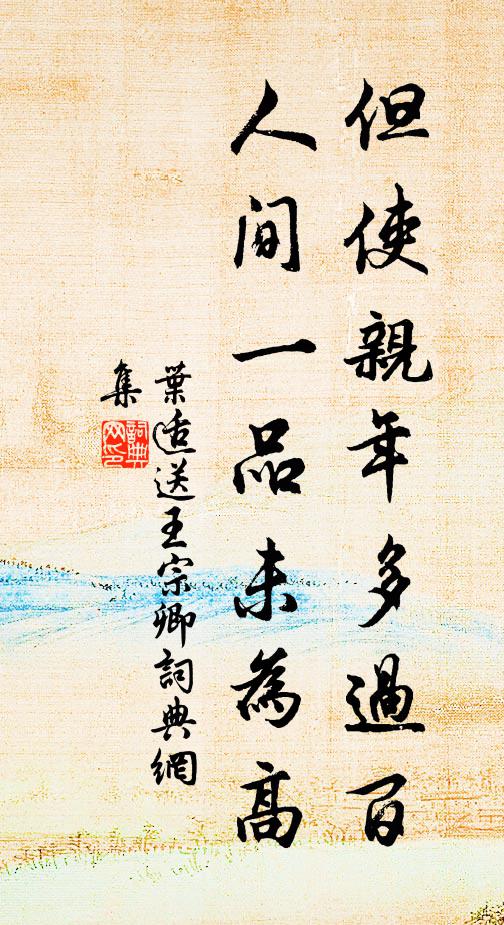 但使親年多過百
人间一品未為高
葉适送王宗卿詞典網
集
詞典
网印